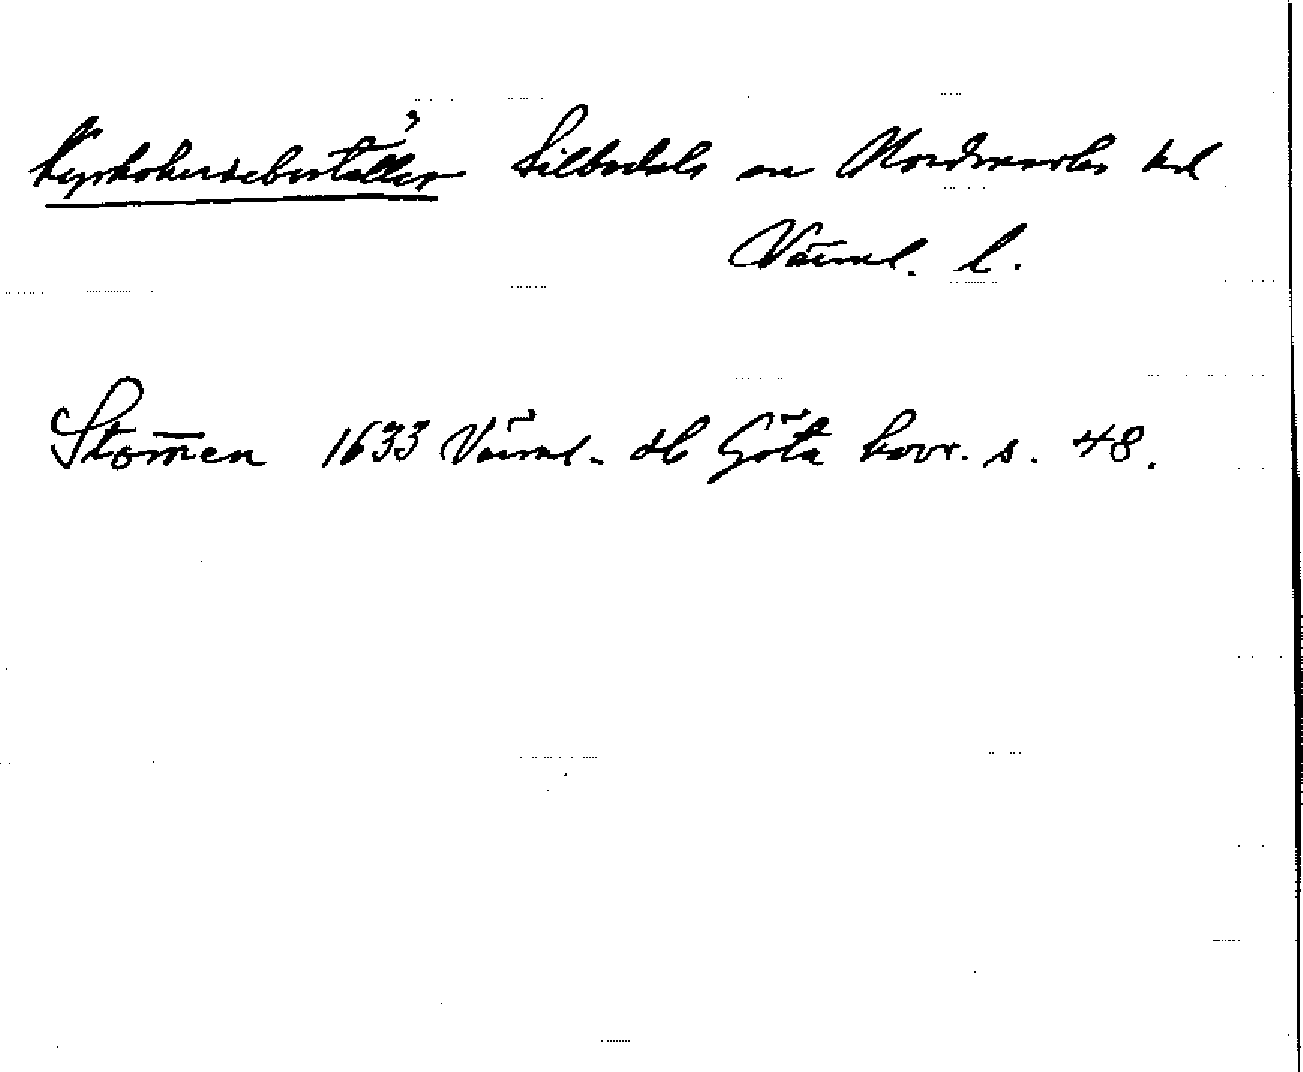 Kyrkoherdebostället Silbodals sn Nordmarks hd
Värml. l.
Stom̅en 1633 Värml. hl Göta hovr. s. 48.